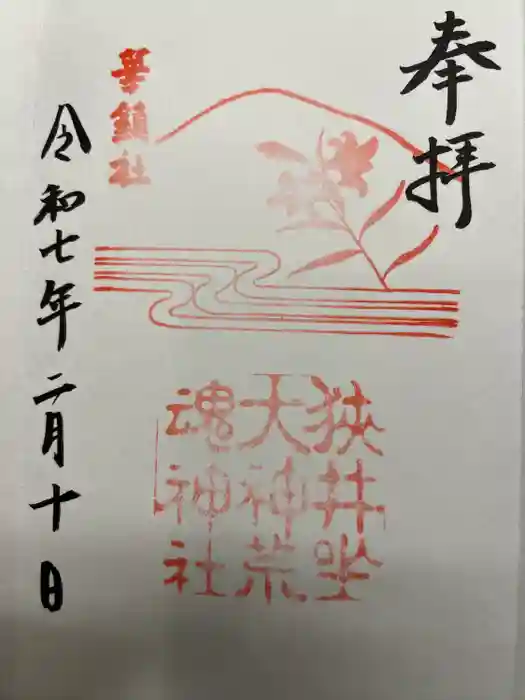 奉拝
華鎮社
狭井坐
大神荒
魂神社
令和七年二月十日